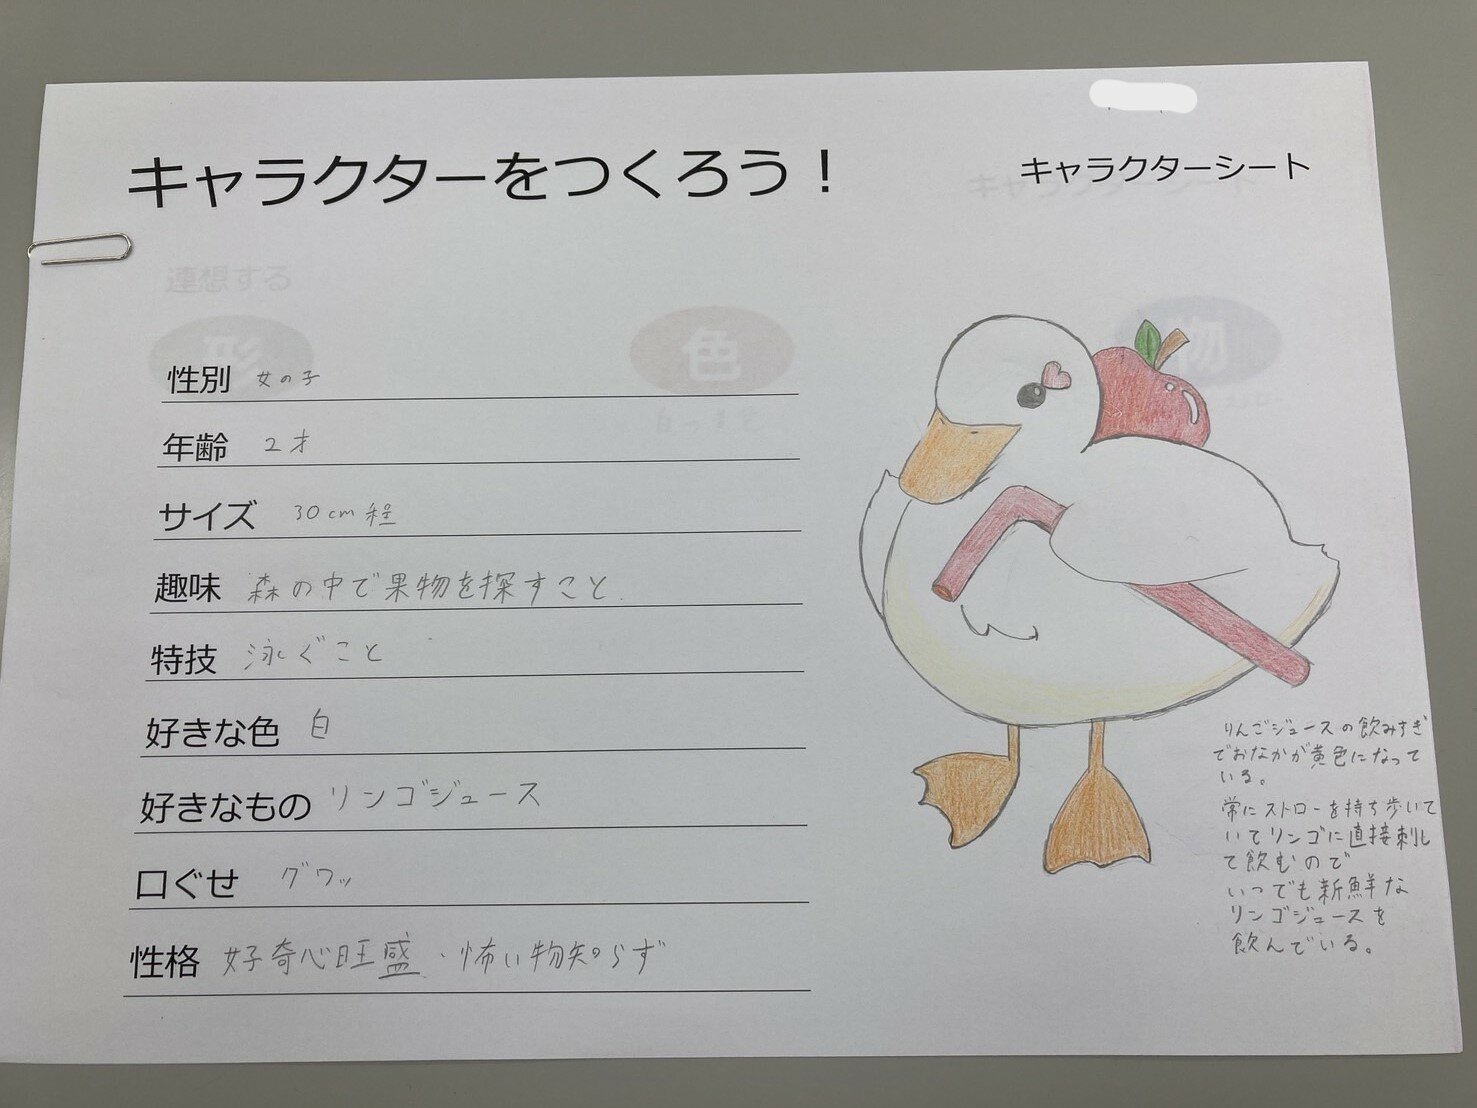 キャラクターをつくろう！
キャラクターシート
連想する
形
色
物
性別 女の子
年齢 2才
サイズ 30cm程
趣味 森の中で果物を探すこと.
特技 泳ぐこと
好きな色 白
好きなもの リンゴジュース
口ぐせ グワッ
性格 好奇心旺盛・怖い物知らず
りんごジュースの飲みすぎ
でおなかが黄色になって
いる。
常にストローを持ち歩いて
いてリンゴに直接刺し
て飲むので
いつでも新鮮な
リンゴジュースを
飲んでいる。